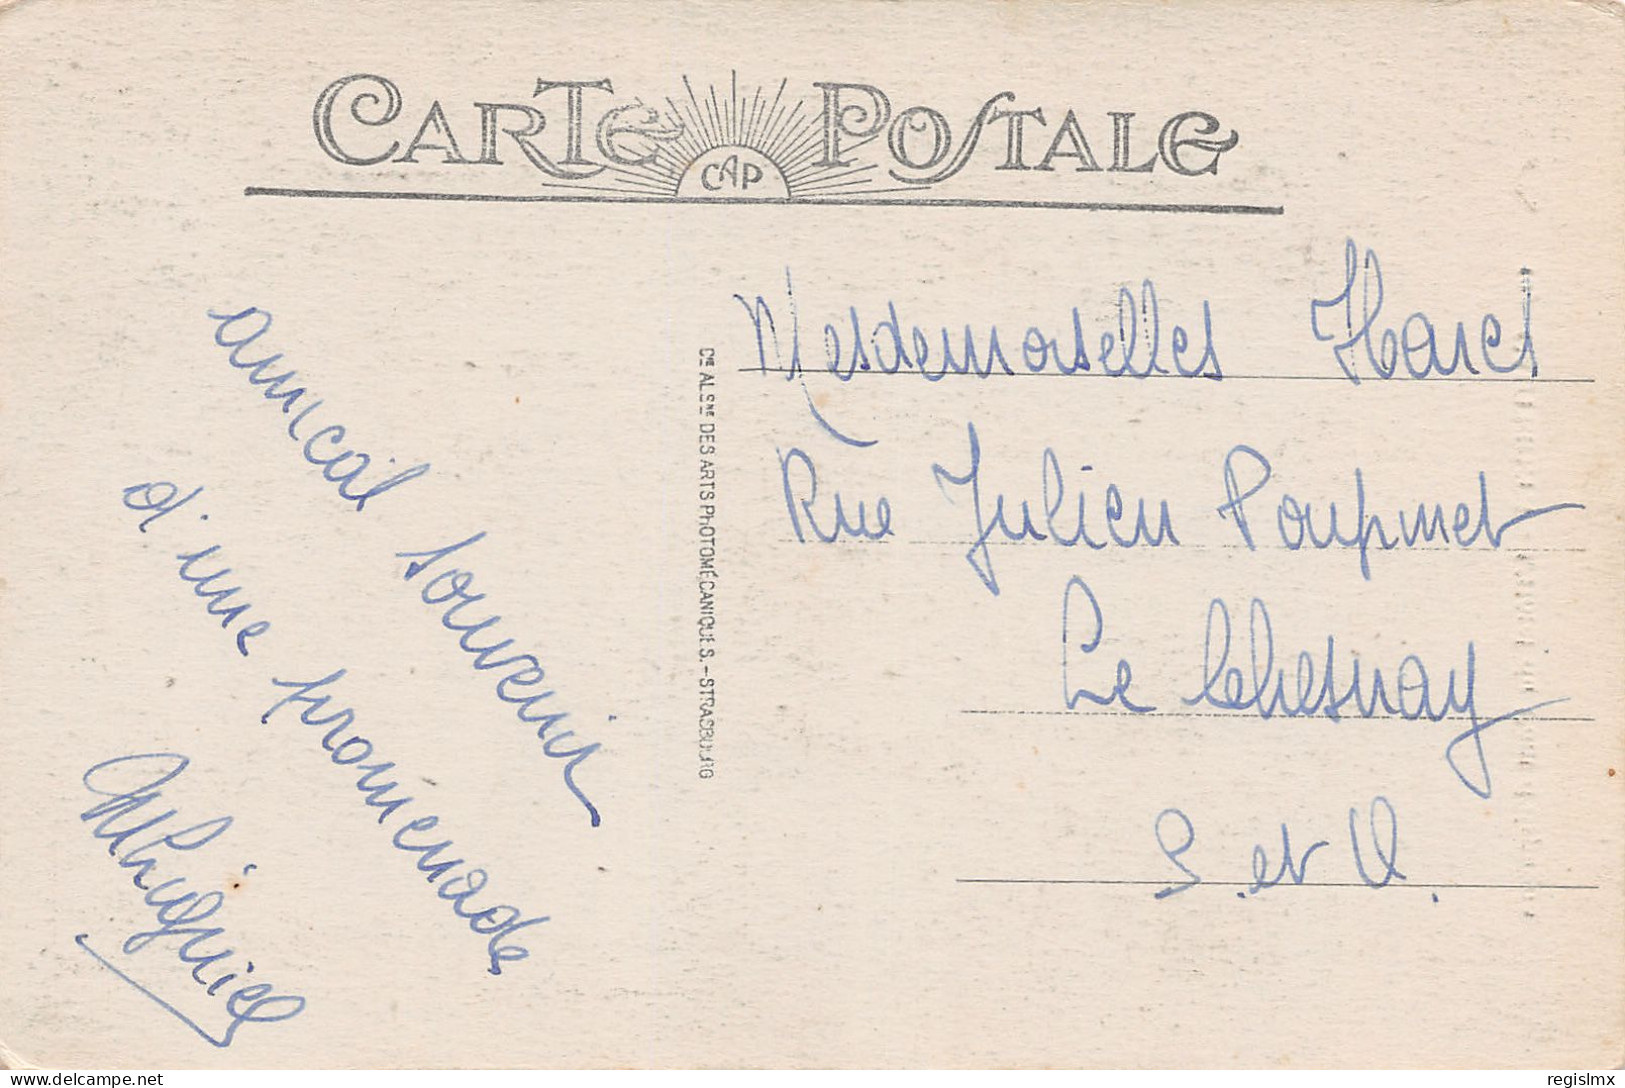 CARTE POSTALE
CAP
amical souvenir
d'une promenade
Cie ALSne DES ARTS PHOTOMÉCANIQUES. - STRASBOURG
Mesdemoiselles
Rue Julien Poupinet
Le Chesnay
S. et O.
delcampe.net
regislmx